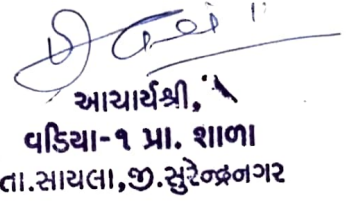 આચાર્યશ્રી,
વડિયા-૧ પ્રા. શાળા
તા.સાયલા,જી.સુરેન્દ્રનગર